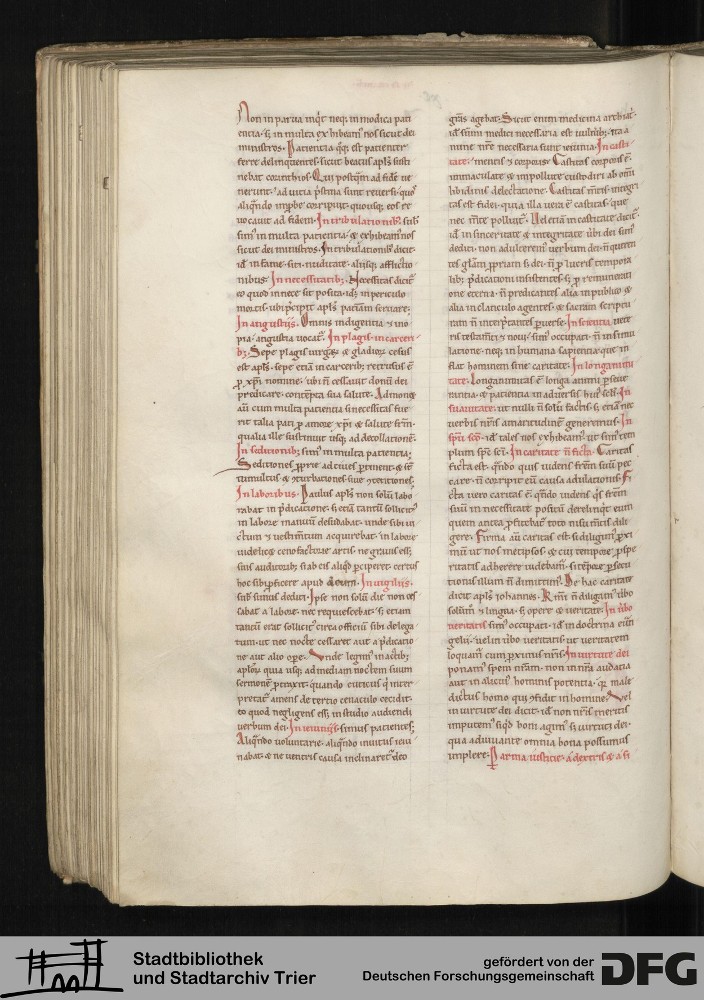 Non in parua inqͥt neq; in modica pati
entia· s; in multa exhibeam᷒ nos sicut dei
ministros· Patientia q̄q; est patienter
ferre delinquentes· sicut beatus apłs susti
nebat corinthios·
nerunt· ad uitia pͥstina sunt reuersi· quos
aliqn̄do inp̄be corripuit· quousq; eos re
uocauit ad fidem· In tribulationib;
sim᷒ in multa patientia· & exhibeam᷒ nos
sicut dei ministros· In tribulationib; dicit·
id ÷ in fame· siti· nuditate· aliisq; afflictio
nibus· In necessitatib;· Necessitas dicit̄
eo quod in nece sit posita· id ÷ in periculo
mortis· ubi p̄cipit apłs patientiam seruare·
In angustiis· Omnis indigentia & ino
pia· angustia uocat̄· In plagis· in carceri
b;· Sepe plagis uirgarū & gladiorū cesus
est apłs· sepe etiā in carcerib; retrusus ē
p xp̄i nomine· ubi n̄ cessauit donū dei
predicare· contēpta sua salute· Admone
aū cum multa patientia si necessitas fue
rit talia pati p amore xp̄i & salute frm̄·
qualia ille sustinuit usq; ad decollationē·
In seditionib; sim᷒ in multa patientia·
Seditiones pprie ad ciues p̄tinent· & st̄
tumultus & pturbationes siue cōtentiones·
In laboribus· Paulus apłs non solū labo
rabat in p̄dicatione· s; etiā tantū sollicit᷒
in labore manuum desudabat· unde sibi ui
ctum & uestimtum acquirebat· in labore
uidelicet cenofactorie artis· ne grauis ess;
suis auditorib;· si ab eis aliqͥd p̄ciperet· certus
hoc sibi pficere apud deum· In uigiliis·
sub simus dediti· Ipse non solū die non ces
sabat a labore· nec requiescebat· s; etiam
tantū erat sollicit᷒ circa officiū sibi delega
tum· ut nec nocte cessaret aut a p̄dicatio
ne aut alio ope· Unde legim᷒ in actib;
apłor· quia usq; ad mediam noctem suum
sermonē ptraxit· quando euticus qͥ inter
pretat̄ amens de tertio cenaculo cecidit·
eo quod negligens ess; in studio audiendi
uerbum dei· In ieiuniis· simus patientes·
Aliqn̄do uoluntarie· aliqn̄do inuitus ieiu
nabat· & ne uentris causa inclinaret̄ deo
grās agebat· Sicut enim medicina archiat̄·
id ÷ summi medici necessaria est uulnib;· ita a
nime nr̄e necessaria sunt ieiunia· In casti
tate· mentis & corporis· Castitas corporis ē·
immaculate & impollute custodiri ab om̄i
libidinis delectatione· Castitas mētis· integri
tas est fidei· quia illa uera ē castitas· que
nec mēte polluit̄· Uel etiā in castitate dicit̄·
id ÷ in sinceritate & integritate ūbi dei sim᷒
dediti· non adulterem᷒ uerbum dei· n̄ queren
tes głam ppriam s; dei· n̄ p lucris tempora
lib; p̄dicationi insistentes· s; p remunerati
one eterna· n̄ predicantes alia in publico &
alia in clanculo agentes· & sacram scriptu
ram n̄ intp̄tantes puerse· In scientia uete
ris testam̄ti & noui· sim᷒ occupati· n̄ in simu
latione· neq; in humana sapientia· que in
flat hominem sine caritate· In longanimi
tate· Longanimitas ē longa animi pseue
rantia· & patientia in aduersis hui᷒ scłi· In
suauitate· ut nulli n̄ solū factis· s; etiā nec
uerbis nr̄is amaritudinē generemus· In
spū scō· id ÷ tales nos exhibeam᷒ ut sim᷒ tem
plum sp̄s sc̄i· In caritate n̄ ficta· Caritas
ficta est· qn̄do quis uidens frēm suū pec
care· n̄ corripit eū causa adulationis· Fi
cta uero caritas ē· qn̄do uidens qͥs frēm
suū in necessitate positū derelinqt· eum
quem antea pfitebat̄ toto nisu mētis dili
gere· Firma aū caritas est· si diligim᷒ pxi
mū ut nos metipsos· & cui᷒ tempore pspe
ritatis adherere uidebam᷒· si tēpore psecu
tionis illum n̄ dimittim᷒· De hac caritate
dicit apłs iohannes· Frēs n̄ diligam᷒ ūbo
solūm & lingua· s; opere & ueritate· In ūbo
ueritatis sim᷒ occupati· id ÷ in doctrina euan
gelii· uel in ūbo ueritatis· ut ueritatem
loquam᷒ cum pximis nr̄is· In uirtute dei
ponam᷒ spem nr̄am· non in nr̄a audatia
aut in alicui᷒ hominis potentia· qͥa male
dictus homo qui cōfidit in homine· Uel
in uirtute dei dicit· id ÷ non nr̄is meritis
imputem᷒ siqͥd boni agim᷒· s; uirtuti dei·
qua adiuuante omnia bona possumus
implere· Per arma iusticie· a dextris & a si
Stadtbibliothek
und Stadtarchiv Trier
gefördert von der
Deutschen Forschungsgemeinschaft
DFG